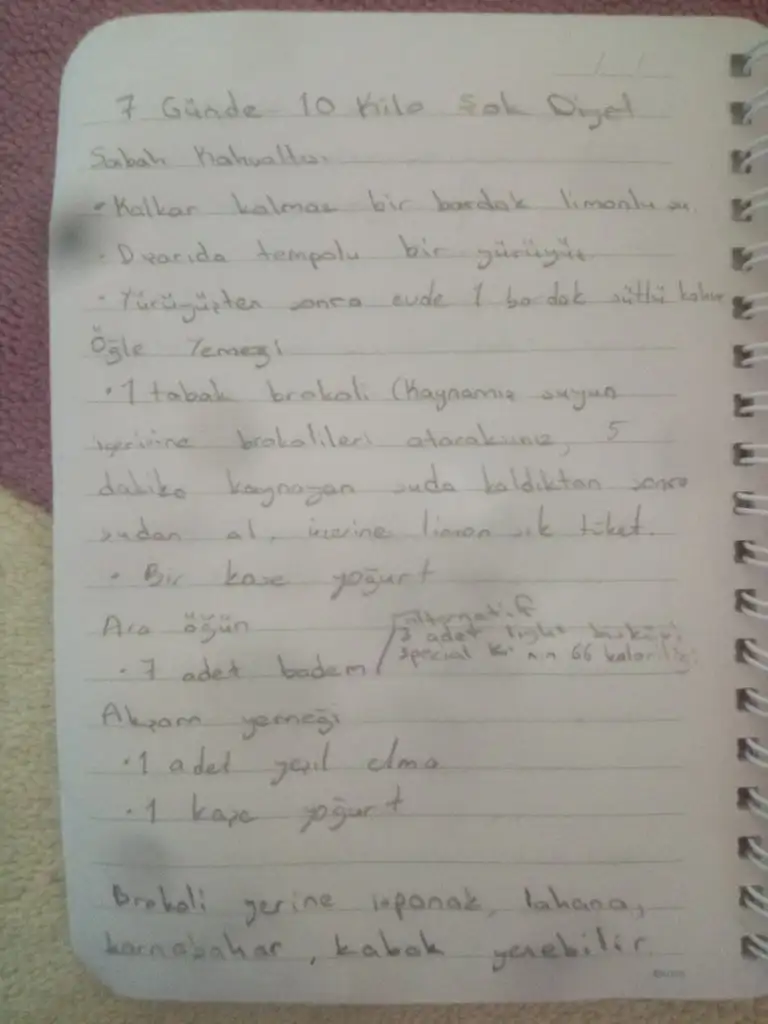 7 Günde 10 Kilo Şok Diyet
Sabah Kahvaltısı
• Kalkar kalmaz bir bardak limonlu su.
• Dışarıda tempolu bir yürüyüş.
• Yürüyüşten sonra evde 1 bardak sütlü kahve
Öğle Yemeği
• 1 tabak brokoli (Kaynamış suyun
içerisine brokolileri atacaksınız, 5
dakika kaynayan suda kaldıktan sonra
sudan al, üzerine limon sık tüket.
• Bir kase yoğurt
Ara öğün
alternatif
3 adet light
• 7 adet badem / special K 66 kalorilik
Akşam yemeği
• 1 adet yeşil elma
• 1 kase yoğurt
Brokoli yerine ıspanak, lahana,
karnabahar, kabak yenebilir.